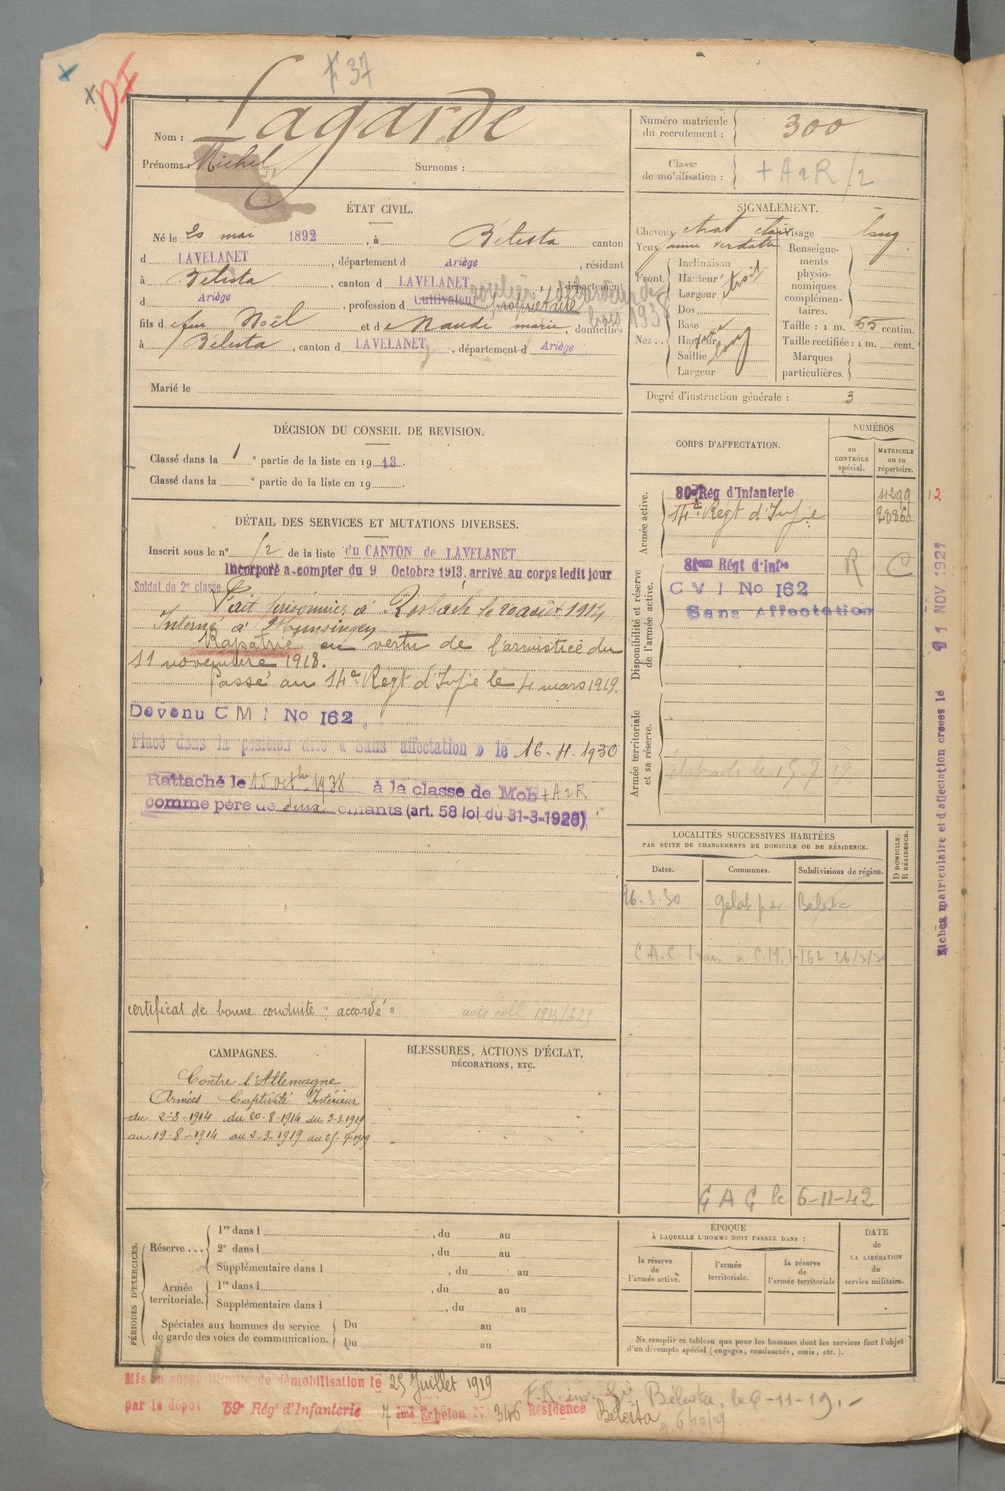 DI
F 37
Nom : Lagarde
Prénoms : Michel Surnoms :
Numéro matricule du recrutement : 300
Classe de mobilisation : + A 2 R /2
ÉTAT CIVIL.
Né le 20 mai 1892, à Bélesta canton
d LAVELANET, département d Ariège, résidant
à Bélesta, canton d LAVELANET, département
d Ariège, profession d Cultivateur propriétaire
fils d e feu Noël et d e Naudi marie, domiciliés
à Bélesta, canton d LAVELANET, département d Ariège
Marié le
SIGNALEMENT.
Cheveux chat clair Visage long
Yeux jaune verdâtre
Front
Inclinaison
Hauteur
Largeur
Nez
Dos
Base
Hauteur
Saillie
Largeur
Renseignements physionomiques complémentaires.
Taille : 1 m. 55 centim.
Taille rectifiée : 1 m. cent.
Marques particulières.
Degré d'instruction générale : 3
DÉCISION DU CONSEIL DE REVISION.
Classé dans la 1 e partie de la liste en 1913.
Classé dans la e partie de la liste en 19
DÉTAIL DES SERVICES ET MUTATIONS DIVERSES.
Inscrit sous le n° 12 de la liste du CANTON de LAVELANET
Incorporé à compter du 9 Octobre 1913, arrivé au corps ledit jour
Soldat de 2e classe Fait prisonnier à Rorbach le 20 août 1914
Interné à Munsingen
Rapatrié en vertu de l'armistice du
11 novembre 1918.
Passé au 14e Regt d'Infie le 4 mars 1919.
Devenu C M I No 162
Placé dans la position dite « Sans affectation » le 16-4-1930
Rattaché le 15 octbre 1938 à la classe de Mob + A 2 R
comme père de deux enfants (art. 58 loi du 31-3-1928)
certificat de bonne conduite : "accordé"
CORPS D'AFFECTATION.
NUMÉROS
au CONTRÔLE spécial.
MATRICULE ou au répertoire.
Armée active.
80e Rég d'Infanterie 4299
14e Régt d'Infie
Disponibilité et réserve de l'armée active.
81em Régt d'Infie R C
C M I No 162
Sans Affectation
Armée territoriale et sa réserve.
12
Fiches matriculaire et d'affectation créées le 01 NOV 1921
LOCALITÉS SUCCESSIVES HABITÉES
PAR SUITE DE CHANGEMENTS DE DOMICILE OU DE RÉSIDENCE.
D DOMICILE. R RÉSIDENCE.
Dates. Communes. Subdivisions de région.
26.3.30 Bélesta
G A G le 6-11-42
CAMPAGNES.
Contre l'Allemagne
Armées Captivité Intérieur
du 2-8-1914 du 20-8-1914 du 3-3-1919
au 19-8-1914 au 2-3-1919
BLESSURES, ACTIONS D'ÉCLAT,
DÉCORATIONS, ETC.
PÉRIODES D'EXERCICES.
Réserve ...
1re dans l , du au
2e dans l , du au
Supplémentaire dans l , du au
Armée territoriale.
1re dans l , du au
Supplémentaire dans l , du au
Spéciales aux hommes du service de garde des voies de communication.
Du au
Du au
ÉPOQUE
À LAQUELLE L'HOMME DOIT PASSER DANS :
la réserve de l'armée active.
l'armée territoriale.
la réserve de l'armée territoriale
DATE de LA LIBÉRATION du service militaire.
Ne remplir ce tableau que pour les hommes dont les services font l'objet
d'un décompte spécial (engagés, condamnés, omis, etc.).
Mis en congé illimité de démobilisation le 25 Juillet 1919
par le dépôt 59e Rég d'Infanterie
7 ème Echelon N° 346 Résidence Bélesta
Bélesta, le 6-11-19.-